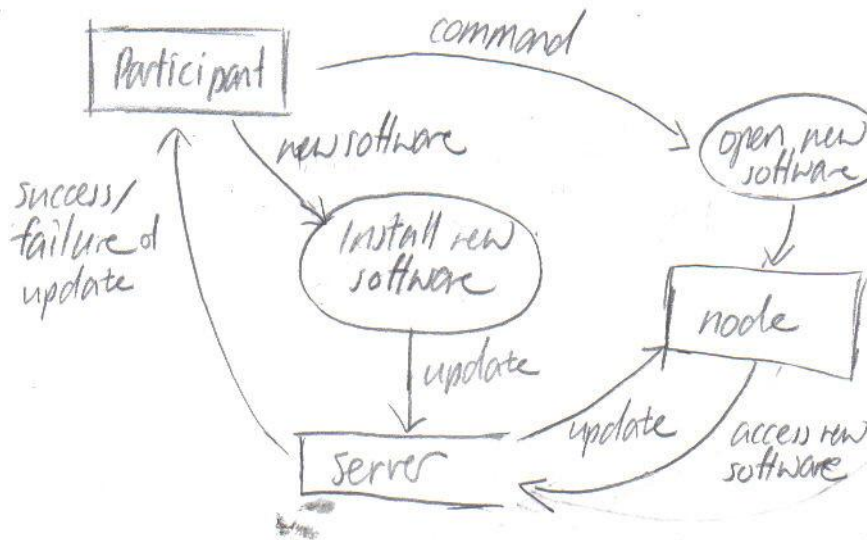 command
Participant
new software
open new
software
success/
failure of
update
Install new
software
node
update
update
access new
software
server